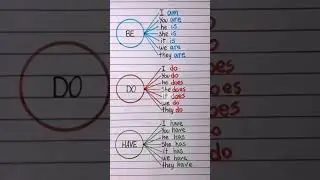 DO
BE
I am
You are
he is
she is
it is
we are
they are
DO
I do
You do
he does
She does
it does
we do
they do
HAVE
I have
You have
he has
She has
it has
we have
they have
do
does
does
does
do
do